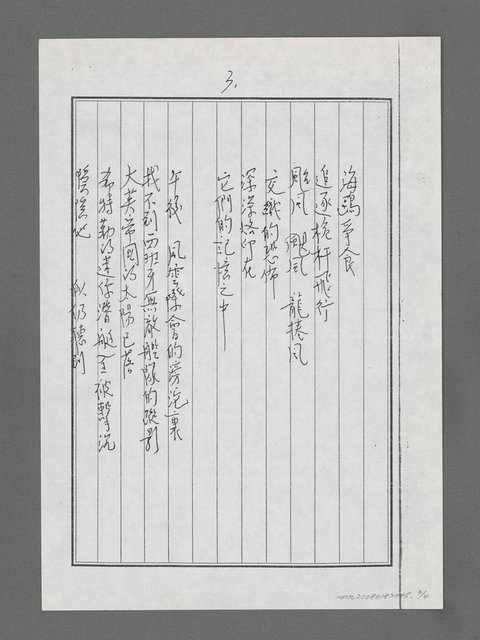 3.
海鷗爭食
追逐桅杆飛行
颱風 颶風 龍捲風
交戰的恐怖
深深烙印在
它們的記憶之中
午後 風雲際會的旁汜裏
找不到西班牙無敵艦隊的蹤影
大英帝國的太陽已落
希特勒的迷你潛艇全被擊沉
贊嘆地 似乎聽到